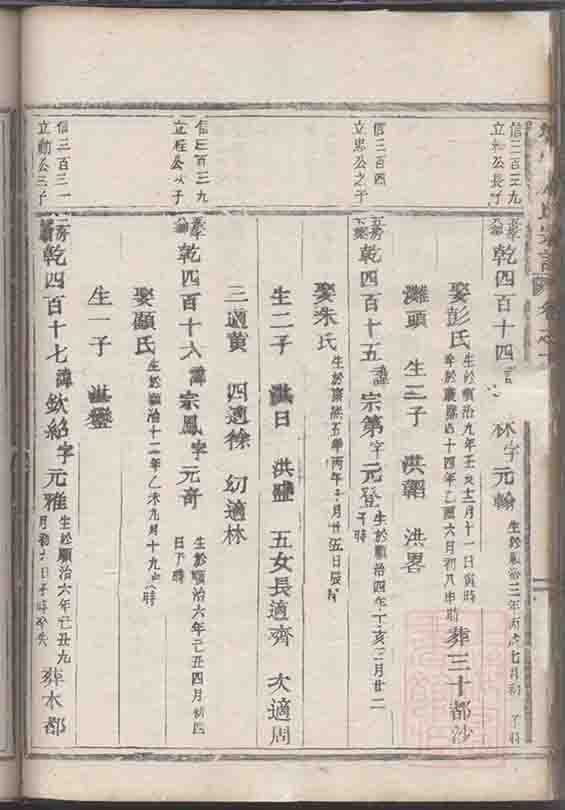 信三百三九
立和公長子
乾四百十四
林字元翰
生於順治三年丙戌七月初
子時
娶彭氏
生於順治九年壬辰十二月十一日寅時
卒於康熙四十四年乙酉六月初八申時
葬三十都沙
灘頭 生二子 洪韜 洪畧
信三百四
立忠公之子
乾四百十五諱宗第字元登
生於順治四年丁亥三月廿二
子時
娶朱氏
生於康熙五年丙午十月廿五日辰時
生二子 洪日 洪盛 五女長適齊 次適周
三適黃 四適徐 幼適林
信三百三九
立程公次子
乾四百十六諱宗鳳字元奇
生於順治六年己丑四月初四
日子時
娶顧氏
生於順治十二年乙未九月十九
時
生一子 洪鑾
信三百三一
立勳公三子
乾四百十七諱欽紹字元雅
生於順治六年己丑九
月初六日子時
葬木都